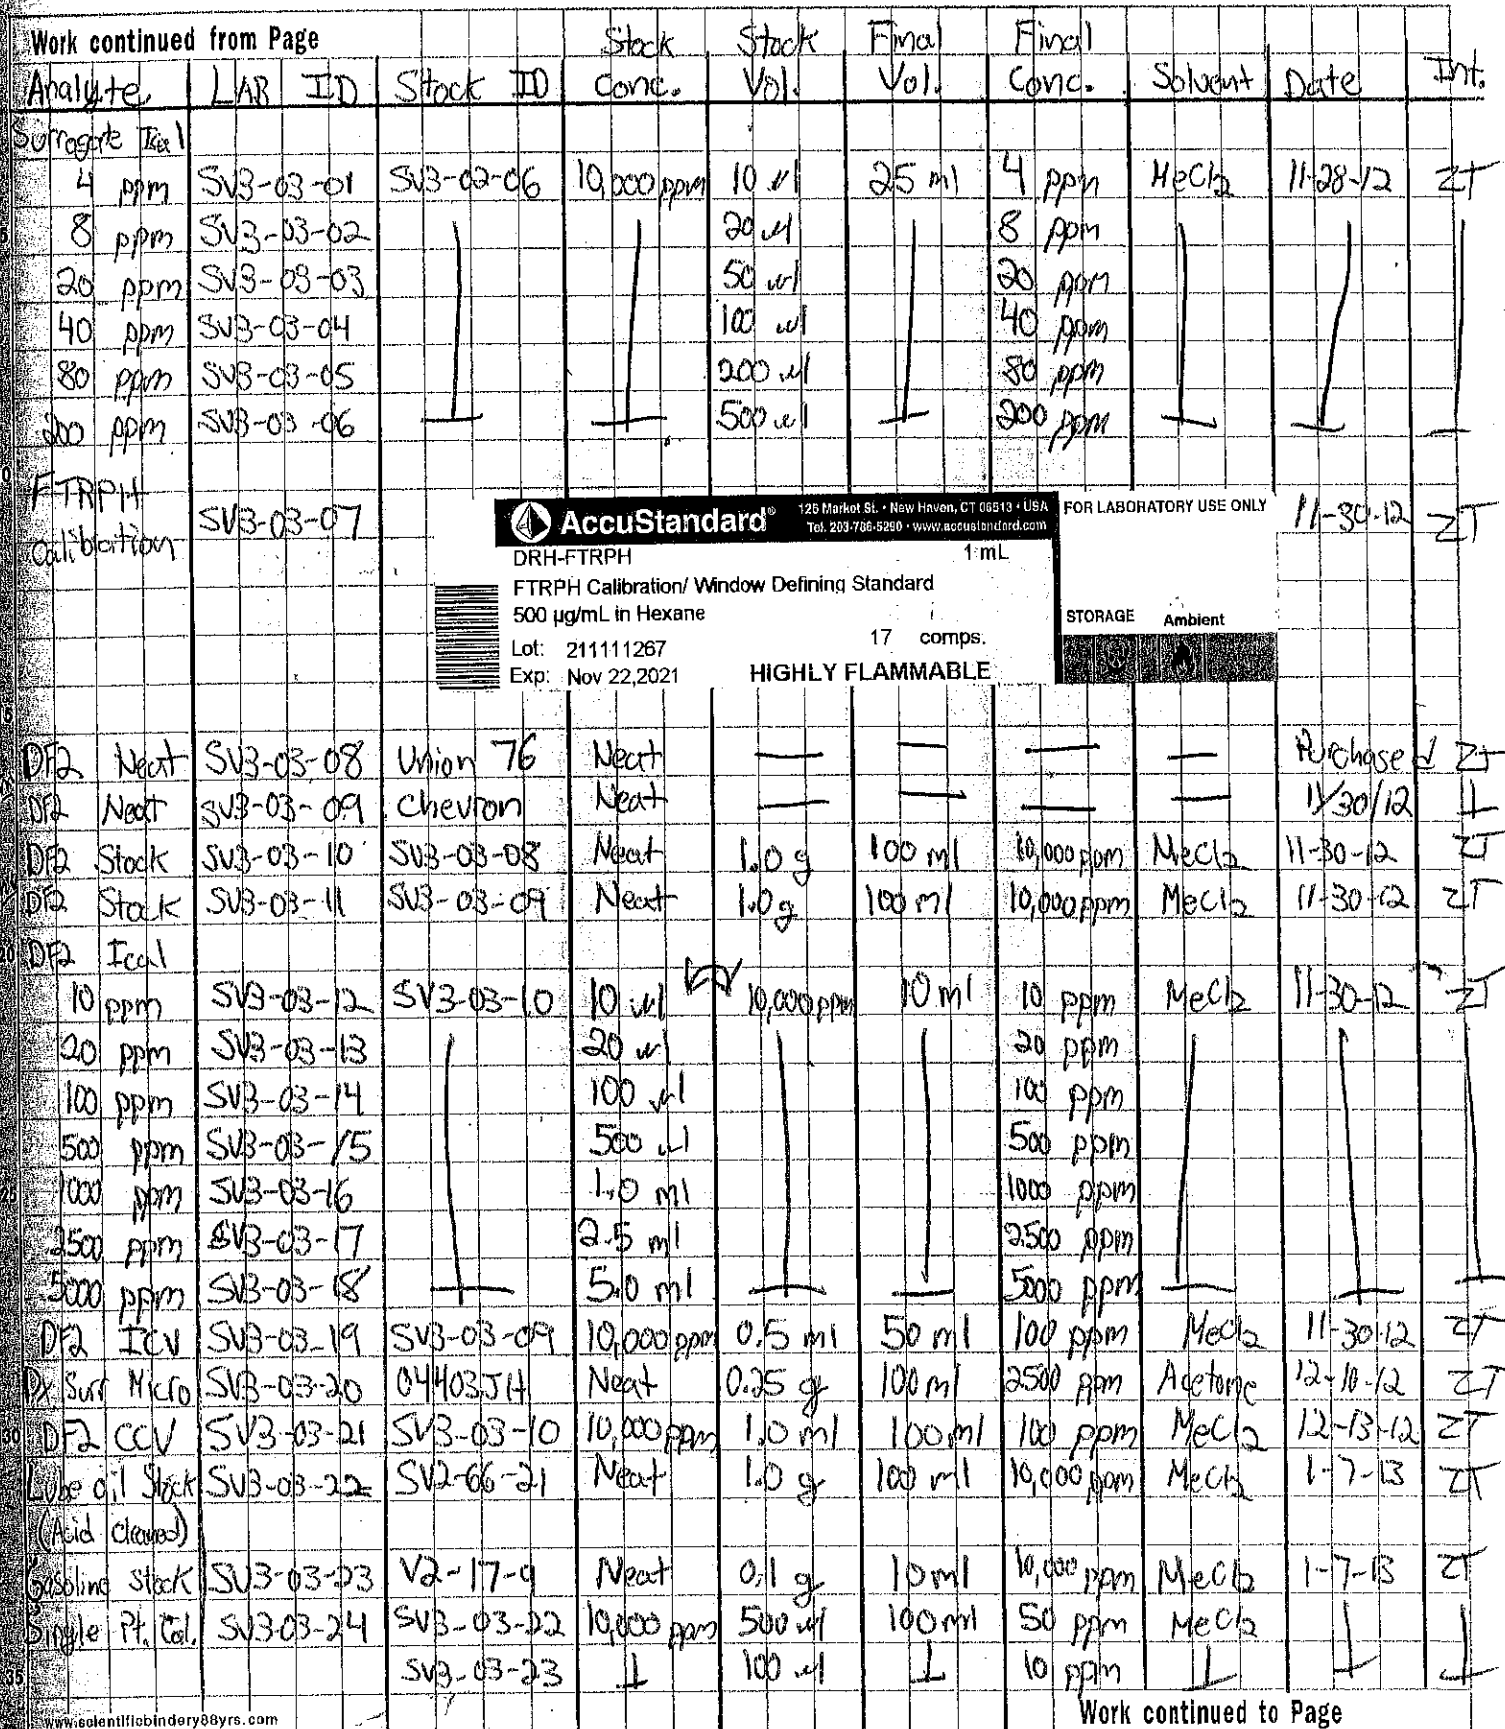 Work continued from Page
Stock Stock Final Final
Analyte LAB ID Stock ID Conc. Vol. Vol. Conc. Solvent Date Int.
Surrogate Ical
4 ppm SV3-03-01 SV3-02-06 10,000 ppm 10 ul 25 ml 4 ppm MeCl2 11-28-12 ZT
8 ppm SV3-03-02 20 ul 8 ppm
20 ppm SV3-03-03 50 ul 20 ppm
40 ppm SV3-03-04 100 ul 40 ppm
80 ppm SV3-03-05 200 ul 80 ppm
200 ppm SV3-03-06 500 ul 200 ppm
FTRPH
Calibration SV3-03-07 11-30-12 ZT
AccuStandard® 125 Market St. • New Haven, CT 06513 • USA
Tel. 203-786-5290 • www.accustandard.com
FOR LABORATORY USE ONLY
DRH-FTRPH 1 mL
FTRPH Calibration/ Window Defining Standard
500 µg/mL in Hexane
STORAGE Ambient
Lot: 211111267 17 comps.
Exp: Nov 22,2021 HIGHLY FLAMMABLE
DF2 Neat SV3-03-08 Union 76 Neat — — — — Purchased ZT
DF2 Neat SV3-03-09 Chevron Neat — — — — 11/30/12
DF2 Stock SV3-03-10 SV3-03-08 Neat 1.0 g 100 ml 10,000 ppm MeCl2 11-30-12 ZT
DF2 Stock SV3-03-11 SV3-03-09 Neat 1.0 g 100 ml 10,000 ppm MeCl2 11-30-12 ZT
20 DF2 Ical
10 ppm SV3-03-12 SV3-03-10 10 ul 10,000 ppm 10 ml 10 ppm MeCl2 11-30-12 ZT
20 ppm SV3-03-13 20 ul 20 ppm
100 ppm SV3-03-14 100 ul 100 ppm
500 ppm SV3-03-15 500 ul 500 ppm
25 1000 ppm SV3-03-16 1.0 ml 1000 ppm
2500 ppm SV3-03-17 2.5 ml 2500 ppm
5000 ppm SV3-03-18 5.0 ml 5000 ppm
DF2 ICV SV3-03-19 SV3-03-09 10,000 ppm 0.5 ml 50 ml 100 ppm MeCl2 11-30-12 ZT
Dx Surr Micro SV3-03-20 04403JH Neat 0.25 g 100 ml 2500 ppm Acetone 12-10-12 ZT
30 DF2 CCV SV3-03-21 SV3-03-10 10,000 ppm 1.0 ml 100 ml 100 ppm MeCl2 12-13-12 ZT
Lube oil Stock SV3-03-22 SV2-66-21 Neat 1.0 g 100 ml 10,000 ppm MeCl2 1-7-13 ZT
(Acid Cleaned)
Gasoline Stock SV3-03-23 V2-17-9 Neat 0.1 g 10 ml 10,000 ppm MeCl2 1-7-13 ZT
Single Pt. Cal. SV3-03-24 SV3-03-22 10,000 ppm 500 ul 100 ml 50 ppm MeCl2
35 SV3-03-23 100 ul 10 ppm
www.scientificbindery88yrs.com
Work continued to Page